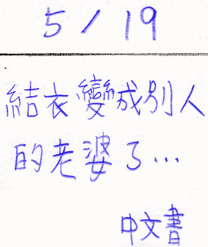 5/19
結衣變成別人
的老婆了…
中文書